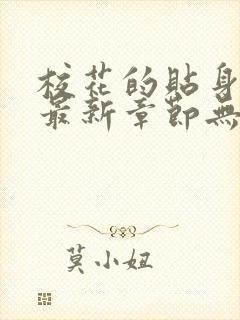 校花的貼身
最新章節無
莫小妞